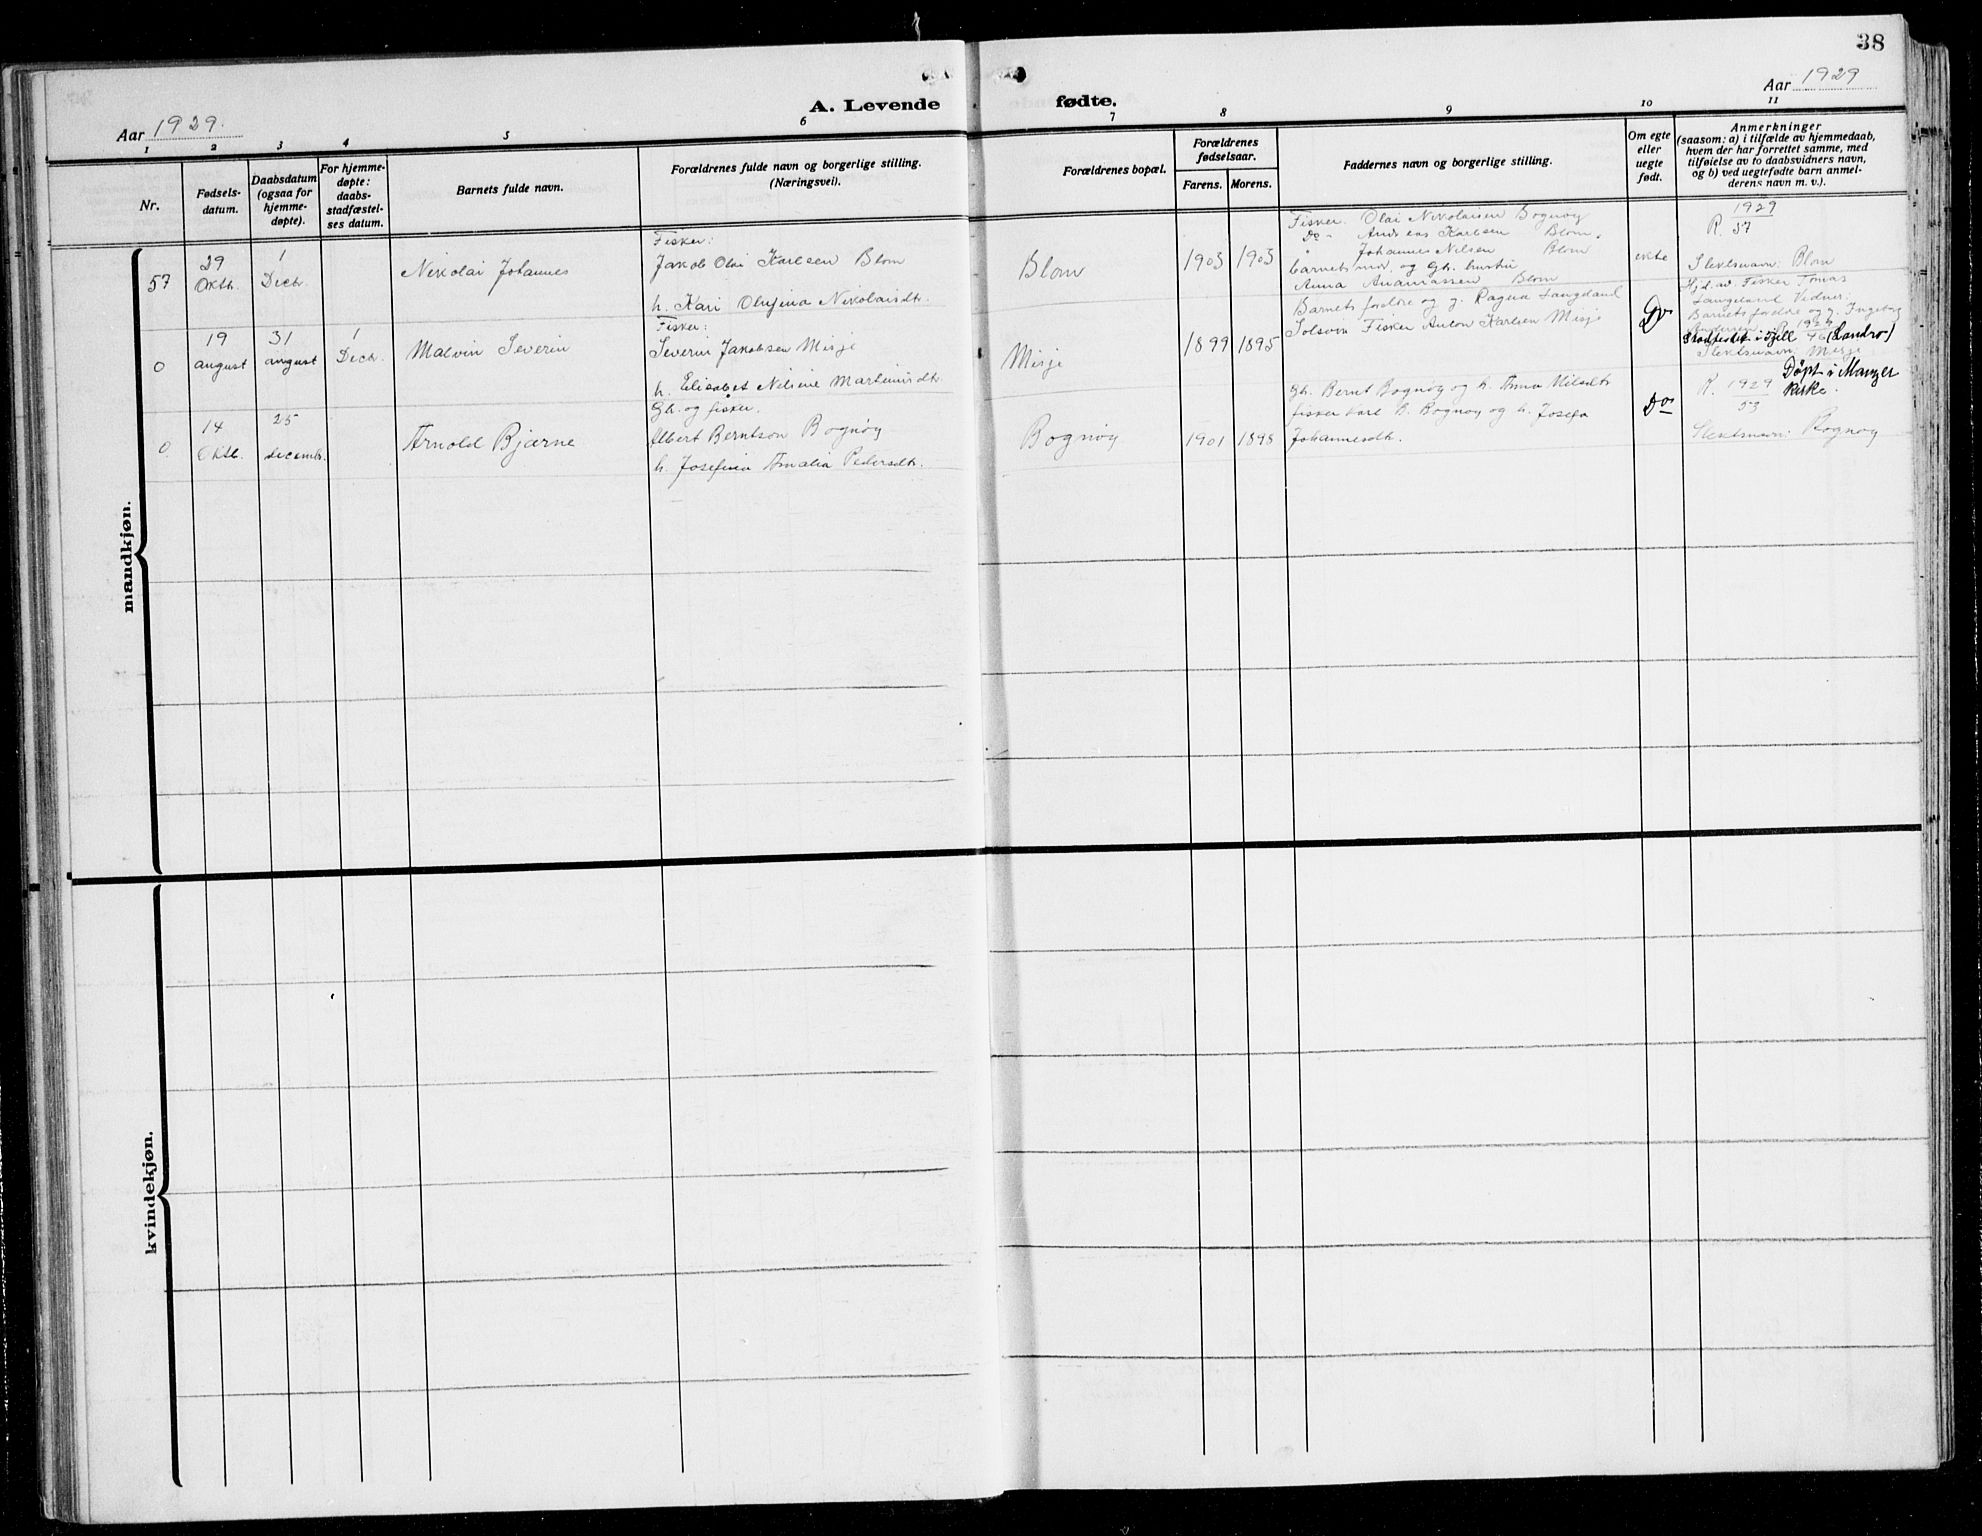 38
A. Levende fødte.
Aar 1929.
Aar 1929
1 2 3 4 5 6 7 8 9 10 11
Nr.
Fødsels-
datum.
Daabsdatum
(ogsaa for
hjemme-
døpte).
For hjemme-
døpte:
daabs-
stadfæstel-
ses datum.
Barnets fulde navn.
Forældrenes fulde navn og borgerlige stilling.
(Næringsvei).
Forældrenes bopæl.
Forældrenes
fødselsaar.
Farens. Morens.
Faddernes navn og borgerlige stilling.
Om egte
eller
uegte
født.
Anmerkninger
(saasom: a) i tilfælde av hjemmedaab,
hvem der har forrettet samme, med
tilføielse av to daabsvidners navn,
og b) ved uegtefødte barn anmel-
derens navn m. v.).
mandkjøn.
57
29
Oktb.
1
Decb.
Nikolai Johannes
Fisker:
Jakob Olai Karlsen Blom
h. Kari Olufina Nikolaisdtr.
Blom
1903 1903
Fisker. Olai Nikolaisen Bognøy
Do - Andreas Karlsen Blom.
" Johannes Nilsen Blom
barnets mor og Gh. hustru
Anna Ananiassen Blom
ekte
1929
R. 57
Slektsnavn: Blom
0
19
august
31
august
1
Decb.
Malvin Severin
Fisker:
Severin Jakobsen Misje
h. Elisabet Nilsine Martinusdtr.
Misje
1899 1895
Barnets foreldre og g. Ragna Langeland
Solsvik Fisker Anton Karlsen Misje
Do
Hjd. av Fisker Tomas
Langeland Vidner:
Barnets foreldre og g. Ingeborg
Stadfestet i Fjell (Landro)
Slektsnavn: Misje
0
14
Oktb.
25
decemb.
Arnold Bjarne
Gb. og fisker.
Albert Berntson Bognøy
h. Josefina Amalia Pedersdtr.
Bognøy
1901 1898
Gb. Bernt Bognøy og h. Anna Nilsdtr
fisker Karl B. Bognøy og h. Josefa
Johannesdtr.
Do
R. 1929
53
Døpt i Manger
kirke.
Slektsnavn: Bognøy
kvindekjøn.